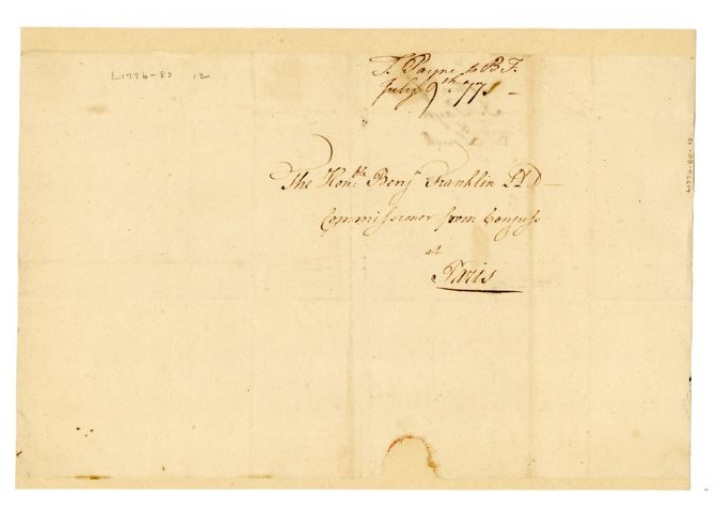 L1776-83 12
T. Payne to B F.
July 9th 77
The Honble. Benjn Franklin
Commissioner from Congress
at
Paris